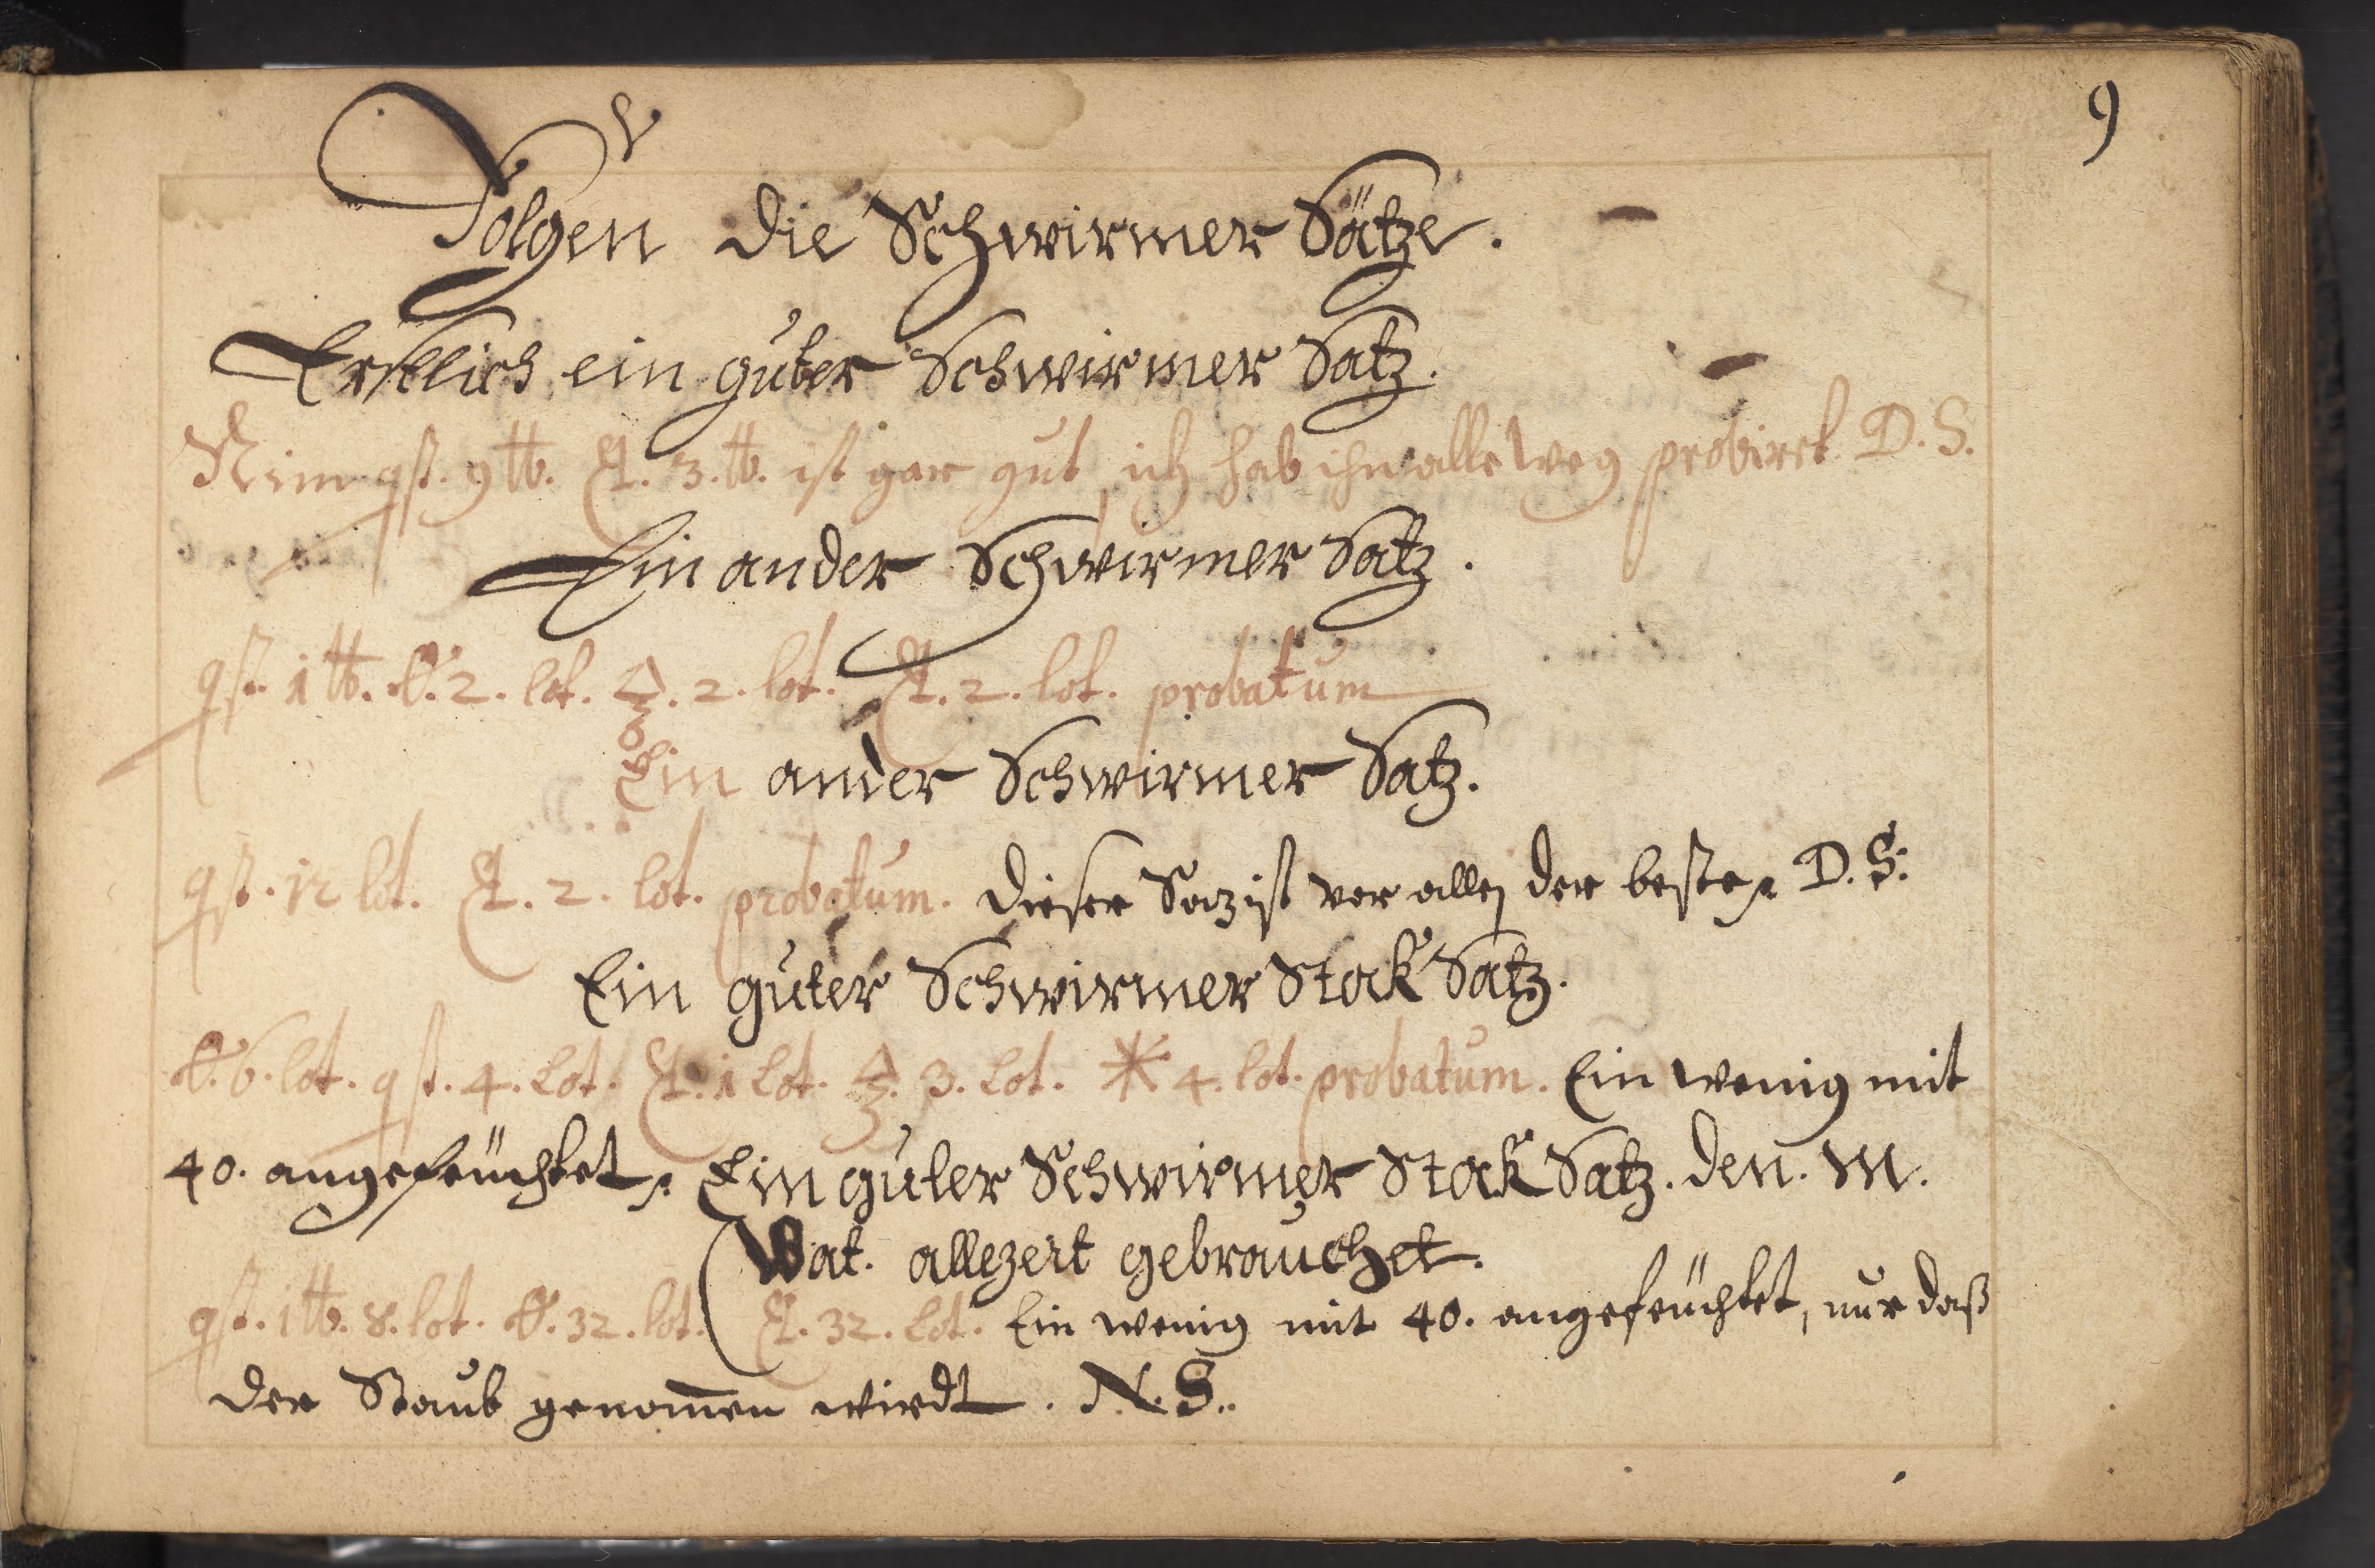 9
Folgen die Schwirmer Sätze.
Erstlich ein guter Schwirmer Satz.
Nim qst. 9 ℔. 3. ℔. ist gar gut, ich hab ihn alleweg probiret. D. S.
Ein ander Schwirmer Satz.
qst. 1 ℔. 2. lot. 🜍. 2. lot. 2. lot. probatum
Ein ander Schwirmer Satz.
qst. 12 lot. 2. lot. probatum. dieser Saz ist vor allen der beste. D. S.
Ein guter Schwirmer Stock Satz.
6. lot. qst. 4. lot. 1 lot. 🜍. 3. lot. * 4. lot. probatum. Ein wenig mit
40. angefeuchtet. Ein guter Schwirmer Stock Satz. den. M.
Wat. allezeit gebrauchet.
qst. 1 ℔. 8. lot. 32. lot. 32. lot. Ein wenig mit 40. angefeuchtet, nur daß
der Staub genom̄en wirdt. N. S.